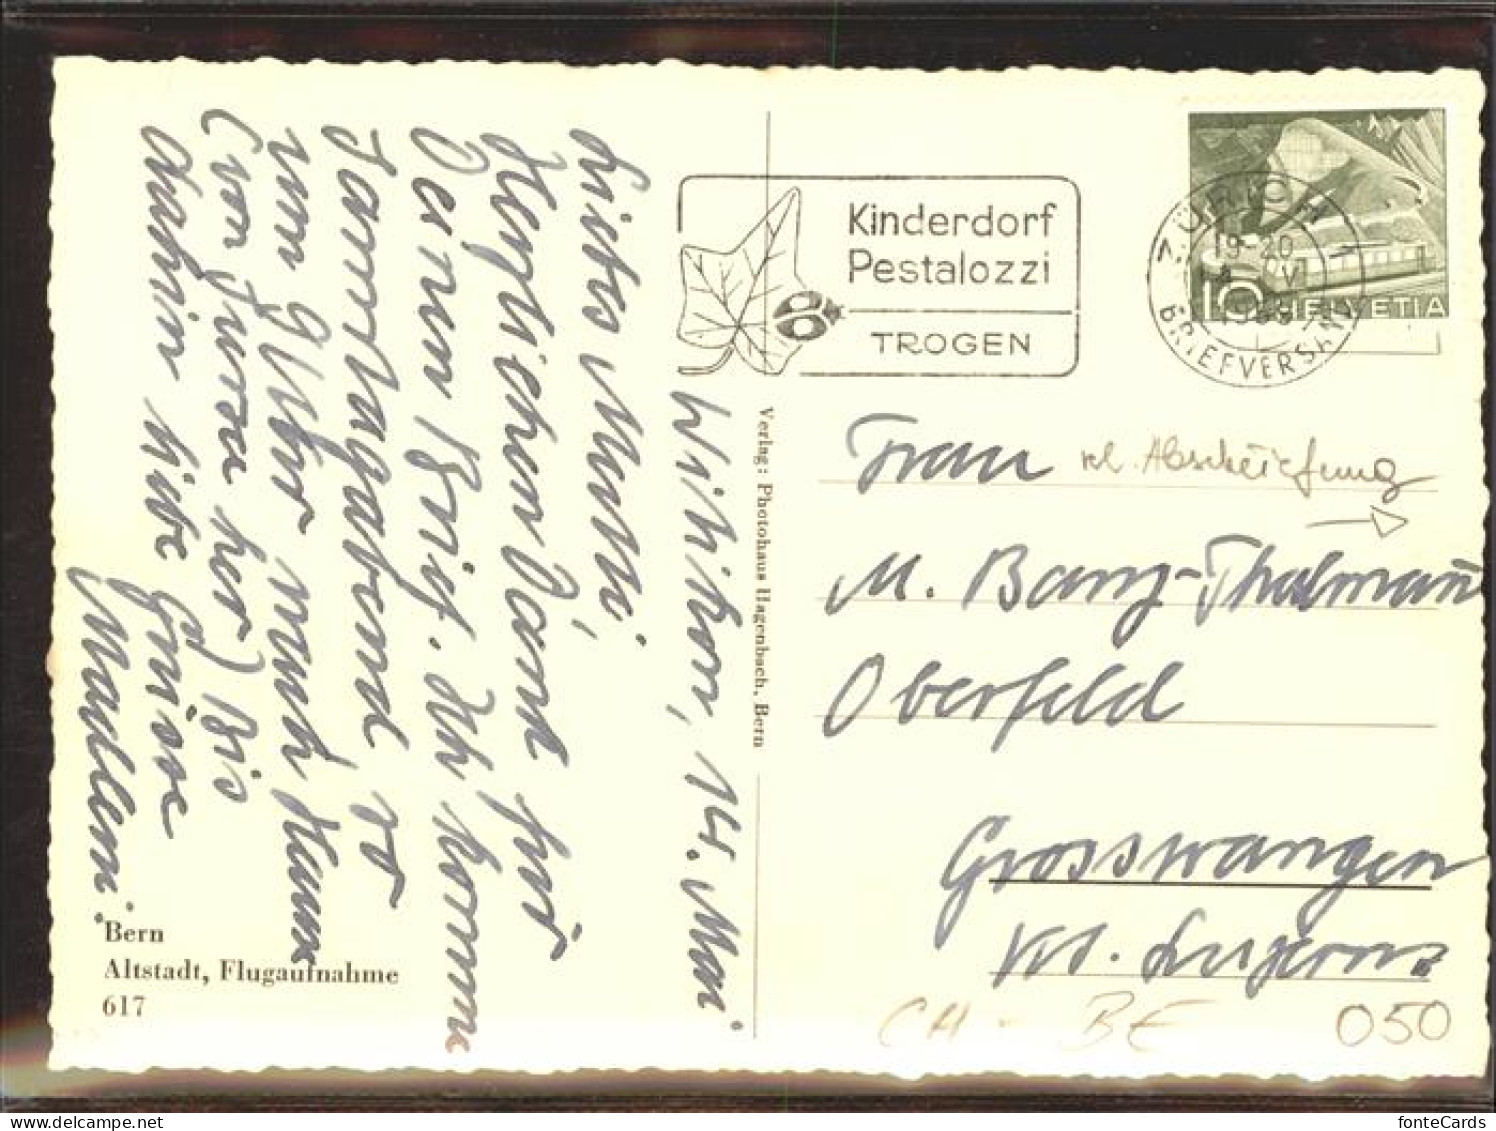 Witikon, 14. Mai
Liebes Mueti,
Herzlichen Dank für
Deinen Brief. Ich komme
Samstagabend, so
um 9 Uhr nach Hause
(von Jussa her) Bis
dahin liebe Grüsse
Madlen.
Kinderdorf
Pestalozzi
TROGEN
ZÜRICH 1
19-20
BRIEFVERSAND
10 HELVETIA
Frau kl. Abschürfung
M. Banz-Thalmann
Oberfeld
Grosswangen
Kt. Luzern
Verlag: Photohaus Hagenbach, Bern
Bern
Altstadt, Flugaufnahme
617
CH - BE 050
fonteCards